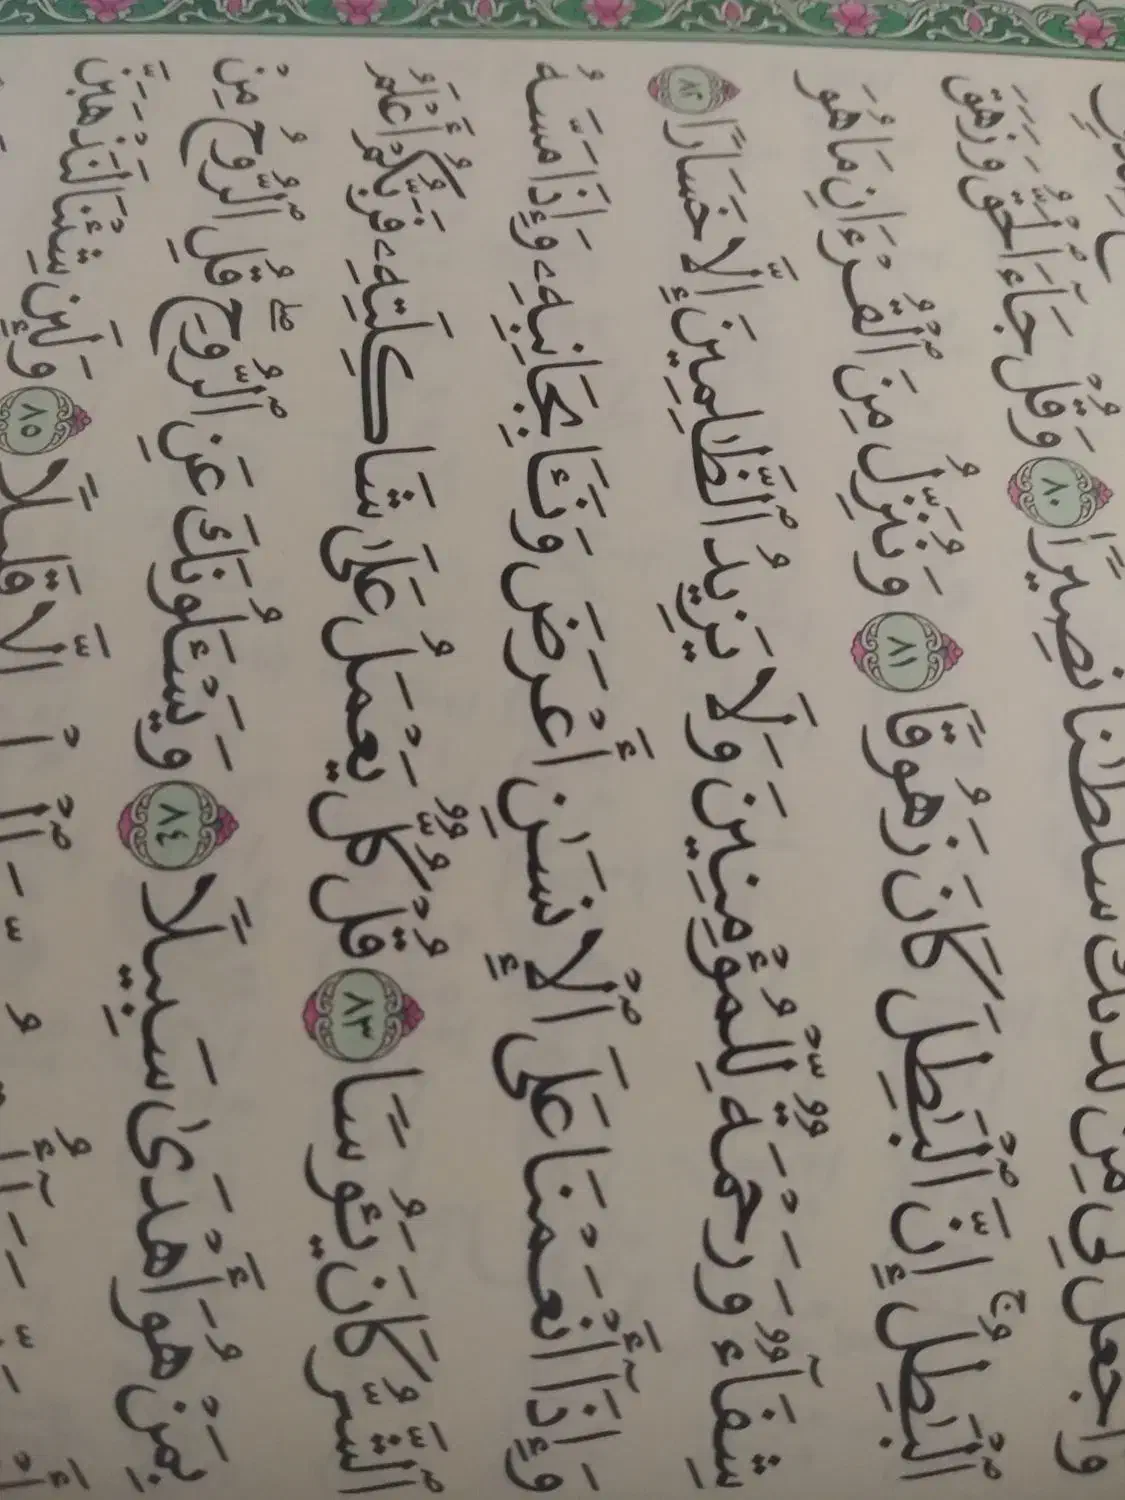 وَٱجْعَل لِّى مِن لَّدُنكَ سُلْطَٰنًا نَّصِيرًا ٨٠ وَقُلْ جَآءَ ٱلْحَقُّ وَزَهَقَ
ٱلْبَٰطِلُۚ إِنَّ ٱلْبَٰطِلَ كَانَ زَهُوقًا ٨١ وَنُنَزِّلُ مِنَ ٱلْقُرْءَانِ مَا هُوَ
شِفَآءٌ وَرَحْمَةٌ لِّلْمُؤْمِنِينَ وَلَا يَزِيدُ ٱلظَّٰلِمِينَ إِلَّا خَسَارًا ٨٢
وَإِذَآ أَنْعَمْنَا عَلَى ٱلْإِنسَٰنِ أَعْرَضَ وَنَـَٔا بِجَانِبِهِۦ وَإِذَا مَسَّهُ
ٱلشَّرُّ كَانَ يَـُٔوسًا ٨٣ قُلْ كُلٌّ يَعْمَلُ عَلَىٰ شَاكِلَتِهِۦ فَرَبُّكُمْ أَعْلَمُ
بِمَنْ هُوَ أَهْدَىٰ سَبِيلًا ٨٤ وَيَسْـَٔلُونَكَ عَنِ ٱلرُّوحِۖ قُلِ ٱلرُّوحُ مِنْ
إِلَّا قَلِيلًا ٨٥ وَلَئِن شِئْنَا لَنَذْهَبَنَّ